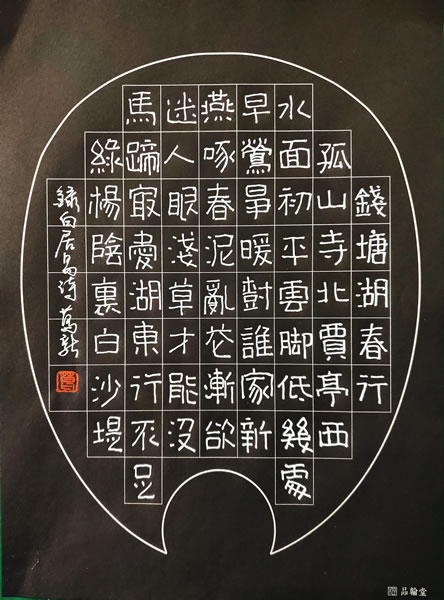 錢塘湖春行
孤山寺北賈亭西
水面初平雲脚低幾處
早鶯爭暖樹誰家新
燕啄春泥亂花漸欲
迷人眼淺草才能沒
馬蹄最愛湖東行不足
綠楊陰裏白沙堤
錄白居易詩
品翰堂